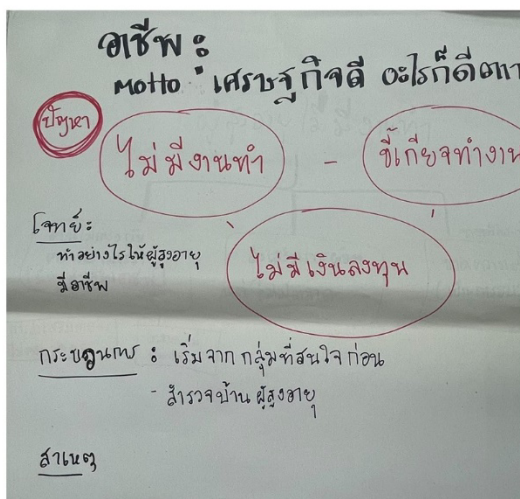 อาชีพ :
Motto : เศรษฐกิจดี อะไรก็ดีตาม
ปัญหา
ไม่มีงานทำ - ขี้เกียจทำงาน
โจทย์ :
ทำอย่างไรให้ผู้สูงอายุ
มีอาชีพ
ไม่มีเงินลงทุน
กระบวนการ : เริ่มจาก กลุ่มที่สนใจ ก่อน
- สำรวจบ้าน ผู้สูงอายุ
สาเหตุ